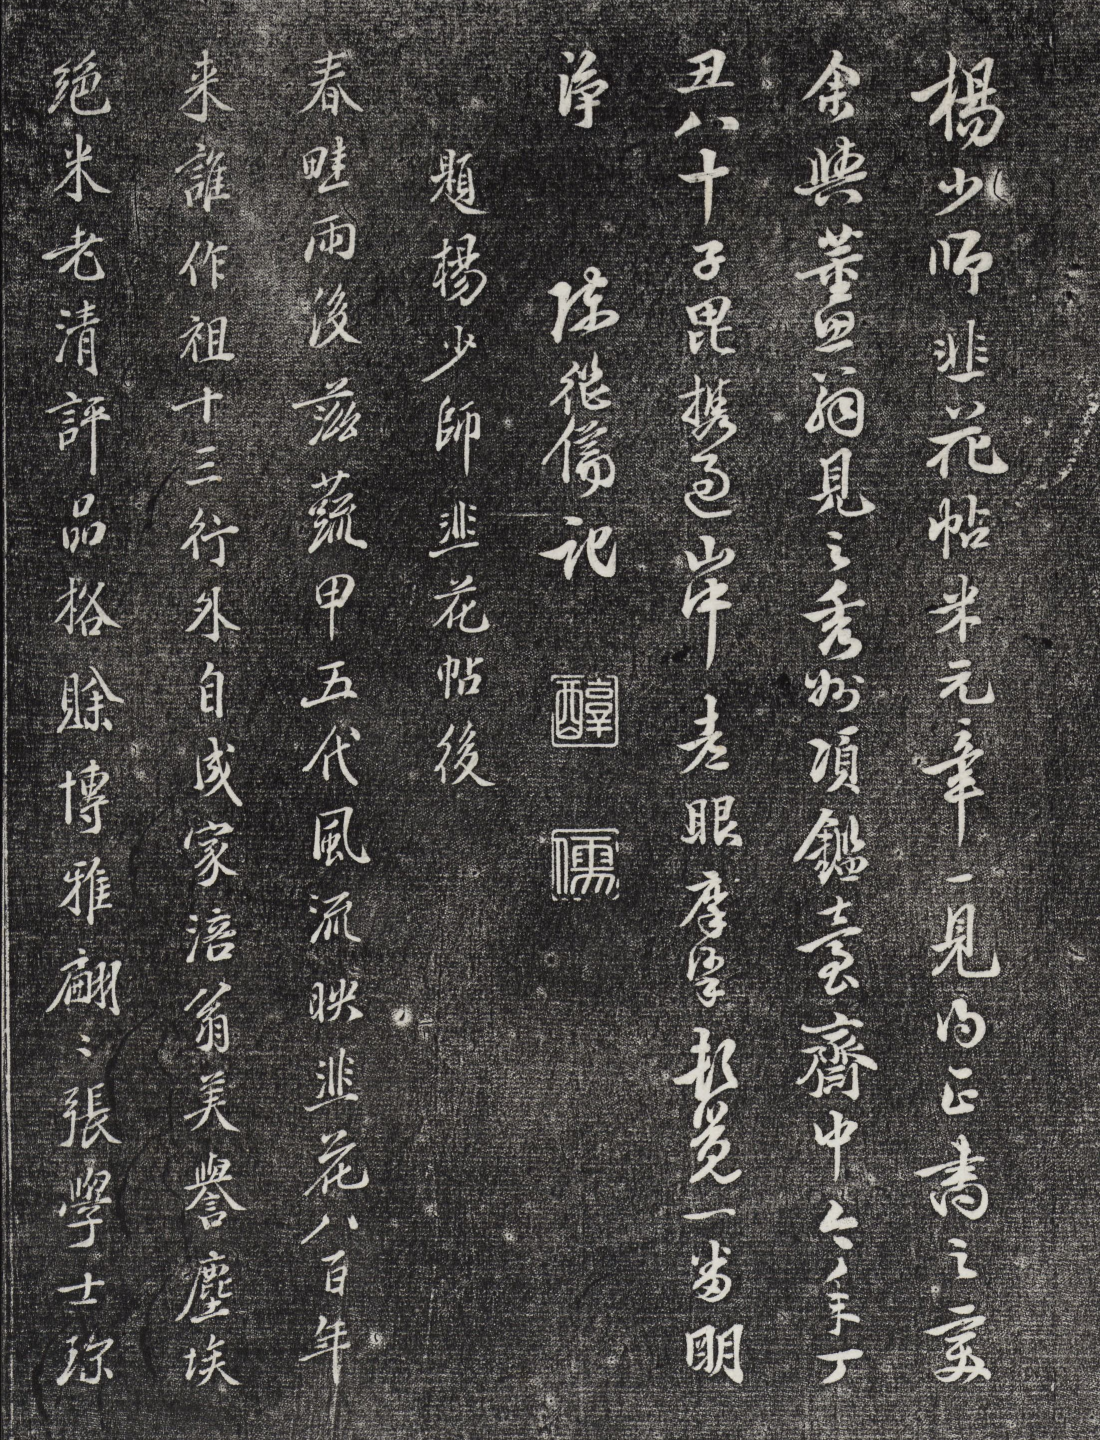 楊少師韭花帖米元章一見為正書之變
余與董思翁見之秀州項鑑臺齋中今年丁
丑八十子毘攜過山中老眼摩挲頓覺一番明
淨
陳繼儒記
醇
儒
題楊少師韭花帖後
春畦雨後茲蔬甲五代風流映韭花八百年
来誰作祖十三行外自成家涪翁美譽塵埃
絕米老清評品格賒博雅翩〻張學士珎